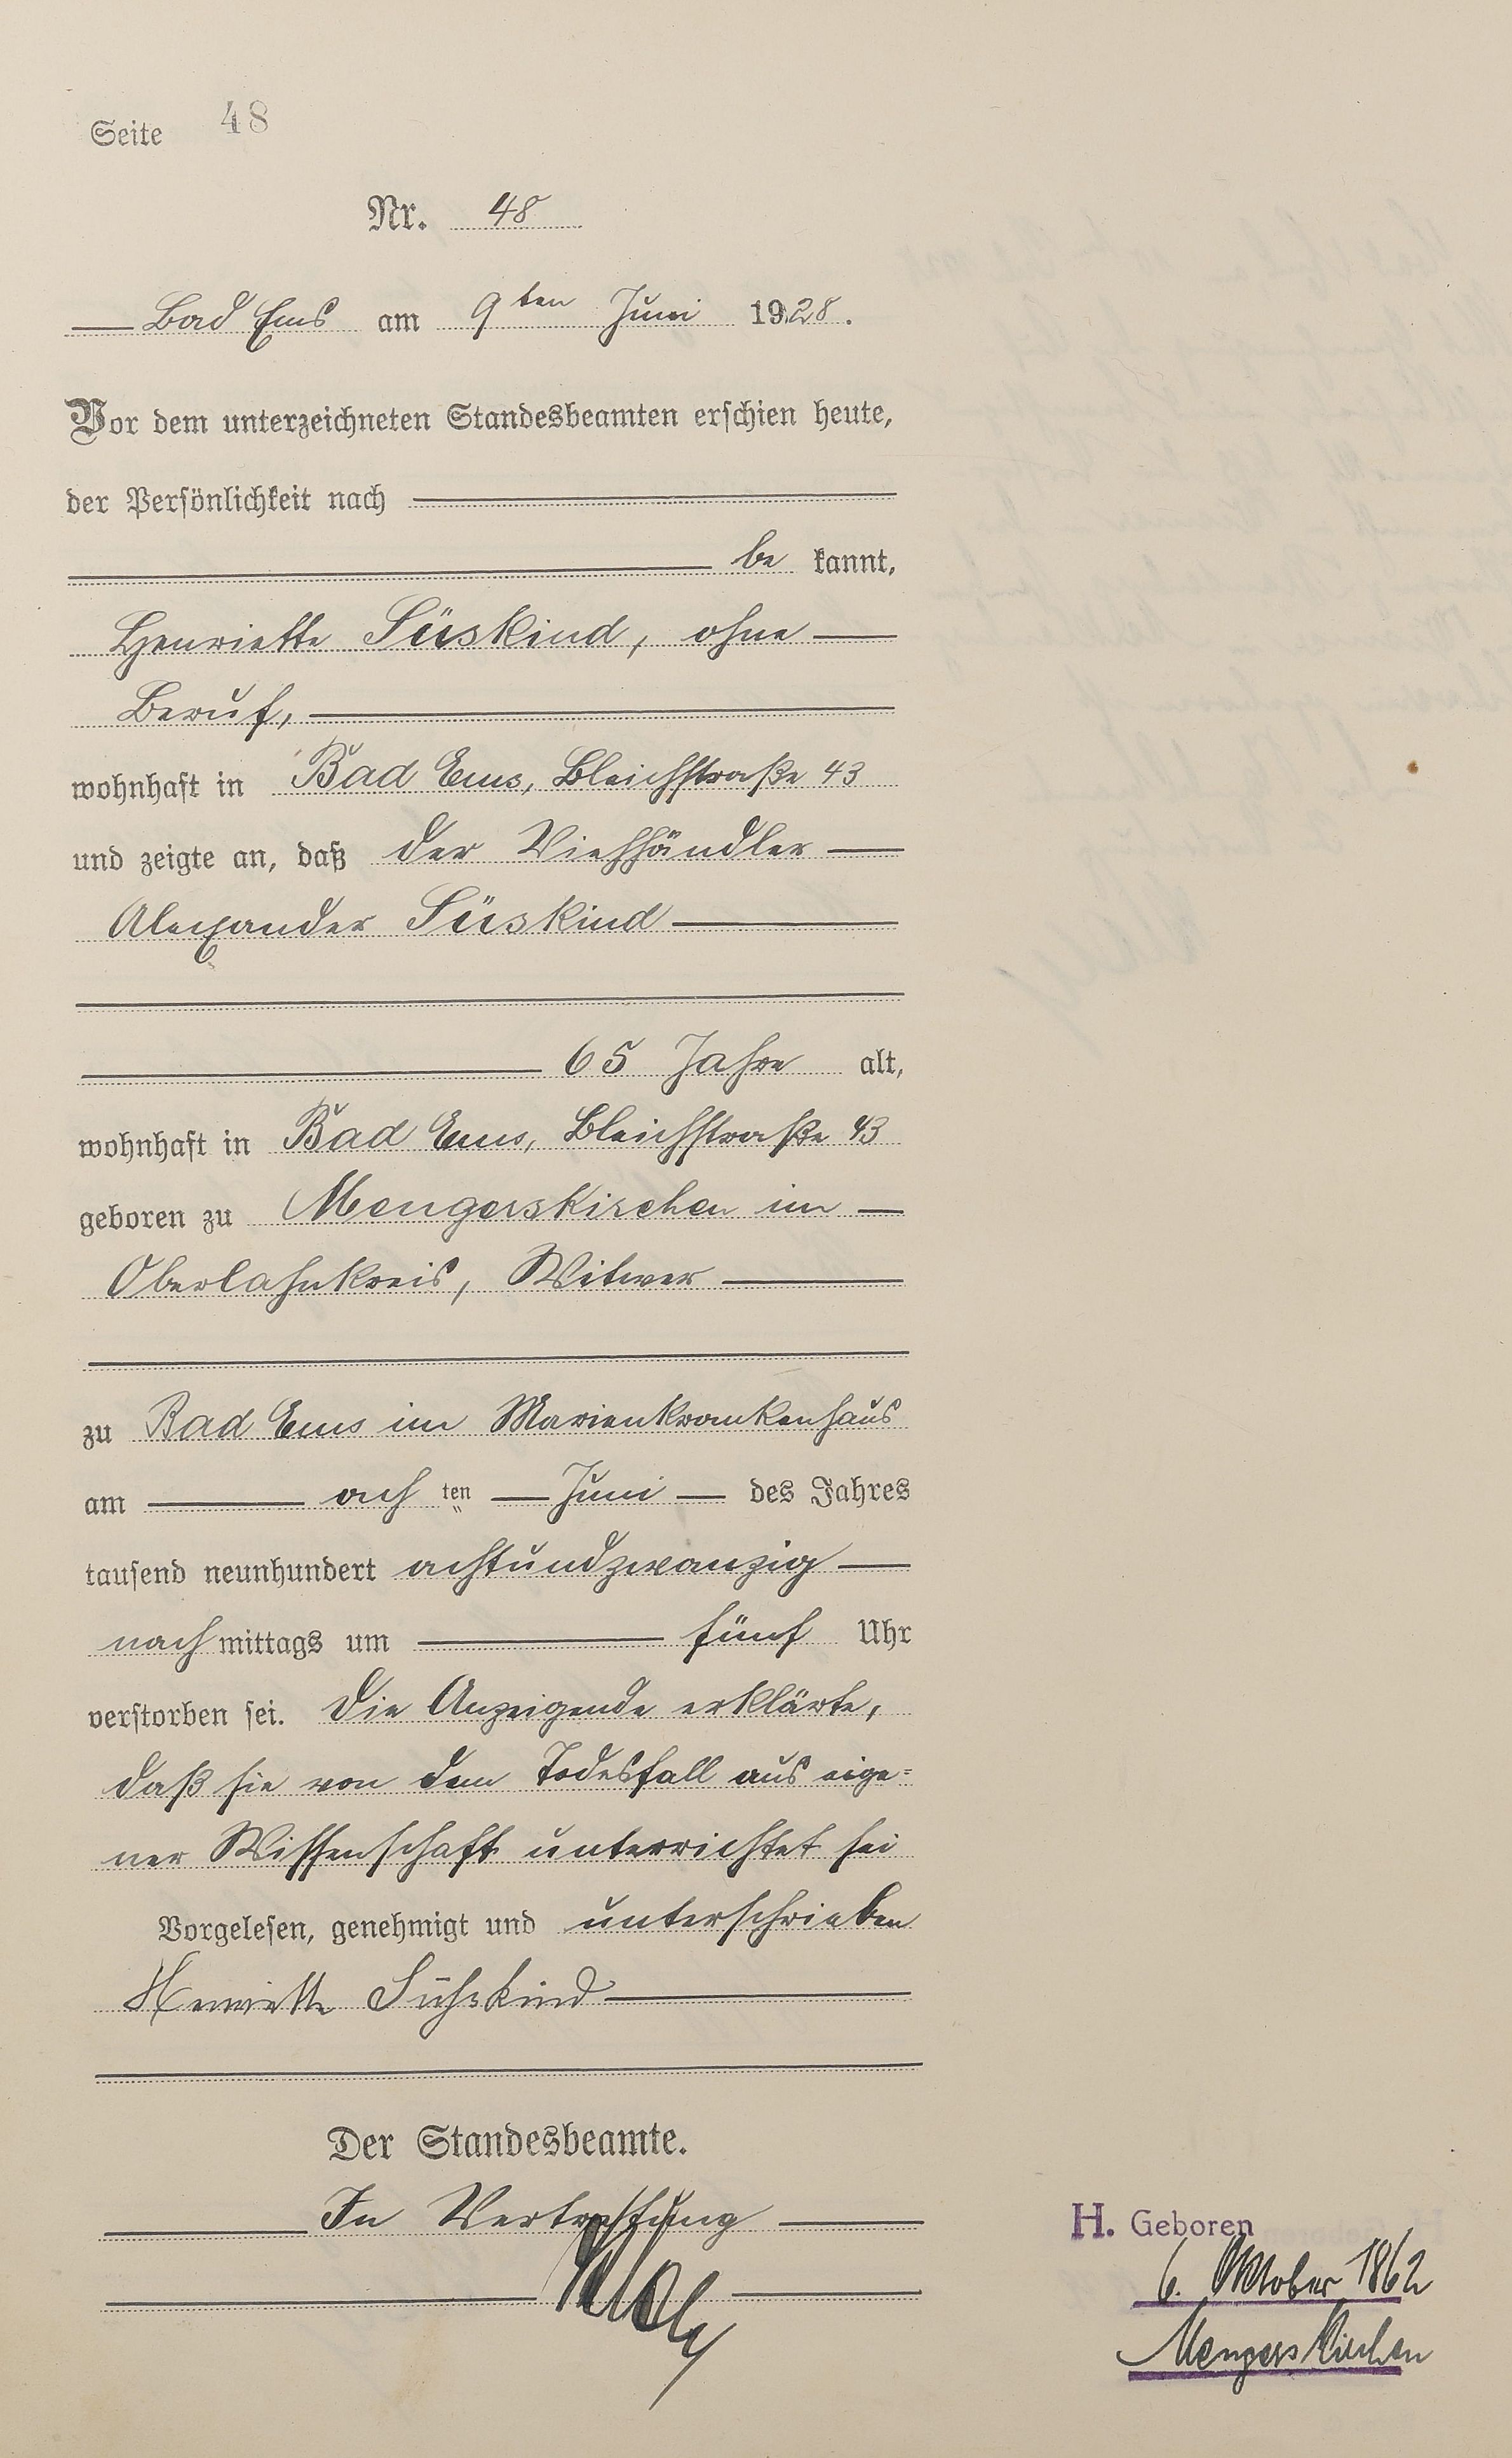 Seite 48
Nr. 48
Bad Ems am 9ten Juni 1928.
Vor dem unterzeichneten Standesbeamten erschien heute,
der Persönlichkeit nach
be kannt,
Henriette Süskind, ohne
Beruf,
wohnhaft in Bad Ems, Bleichstraße 43
und zeigte an, daß der Viehhändler
Alexander Süskind
65 Jahre alt,
wohnhaft in Bad Ems, Bleichstraße 43
geboren zu Mengerskirchen im
Oberlahnkreis, Witwer
zu Bad Ems im Marienkrankenhaus
am ach ten Juni des Jahres
tausend neunhundert achtundzwanzig
nach mittags um fünf Uhr
verstorben sei. Die Anzeigende erklärte,
daß sie von dem Todesfall aus eige=
ner Wissenschaft unterrichtet sei
Vorgelesen, genehmigt und unterschrieben
Henriette Süßskind
Der Standesbeamte.
In Vertretung
H. Geboren
6. Oktober 1862
Mengerskirchen